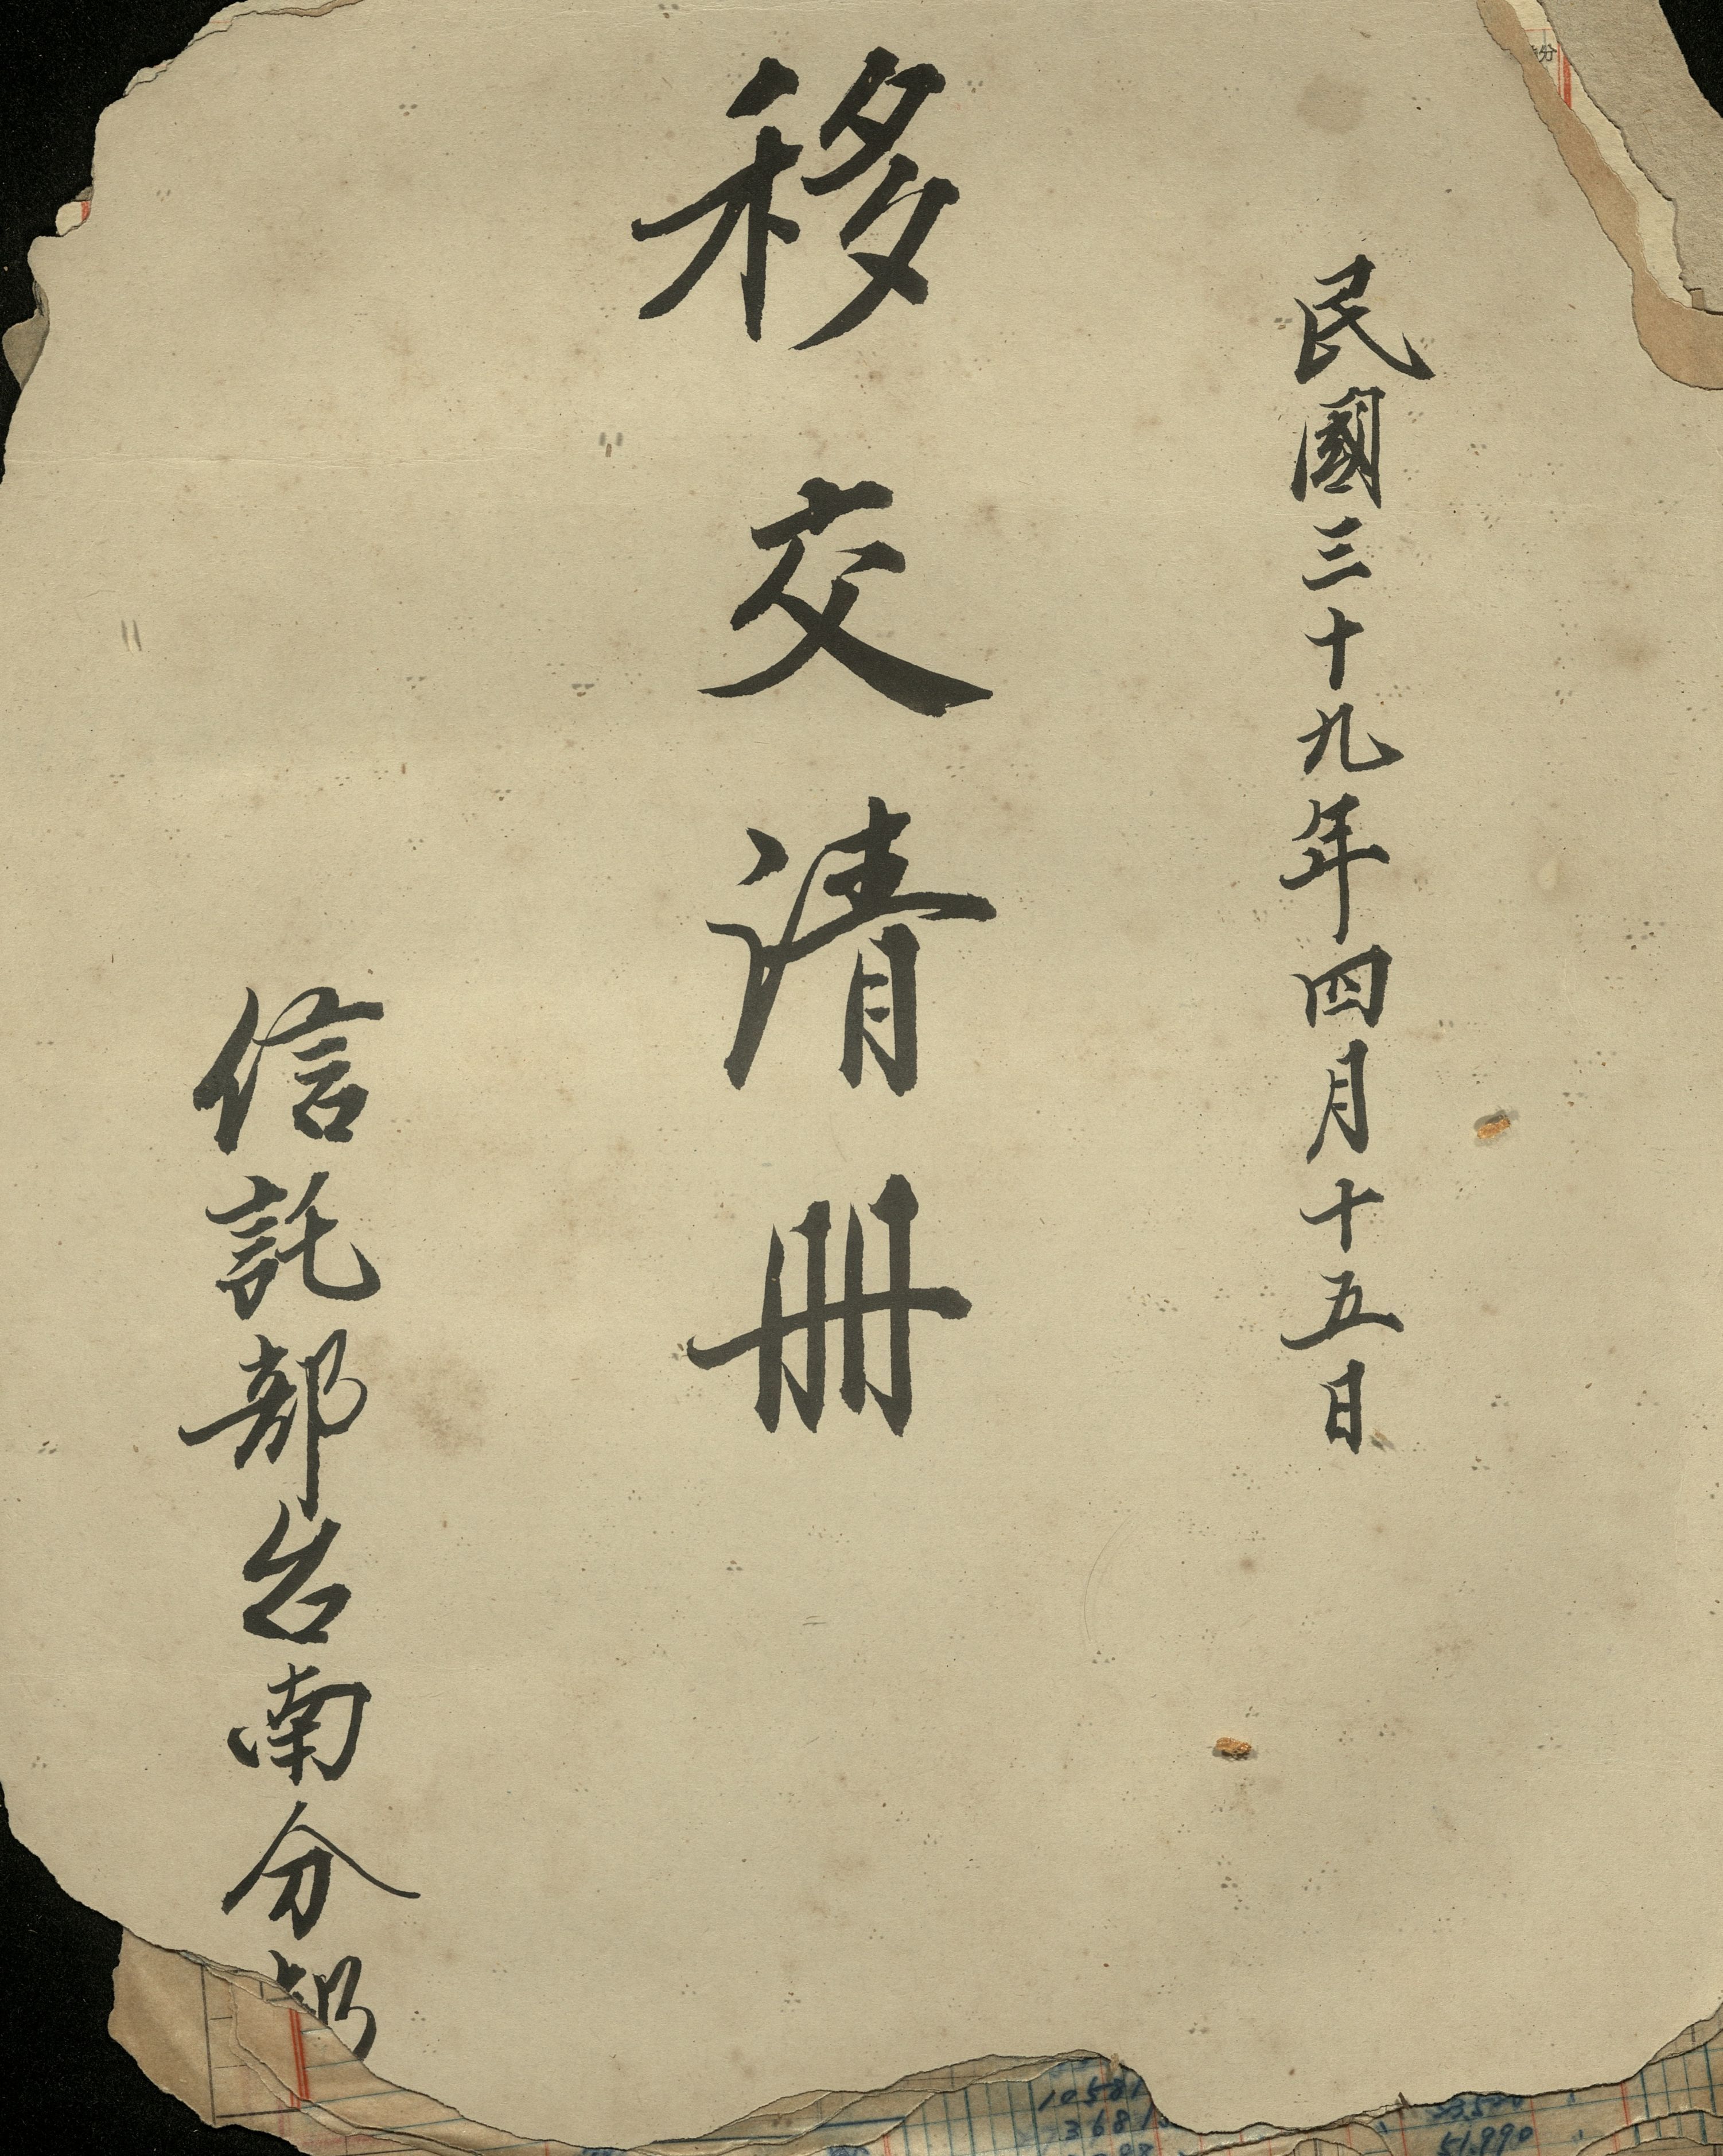 民國三十九年四月十五日
移交清册
信託部台南分部
分
10581
3681
51,990